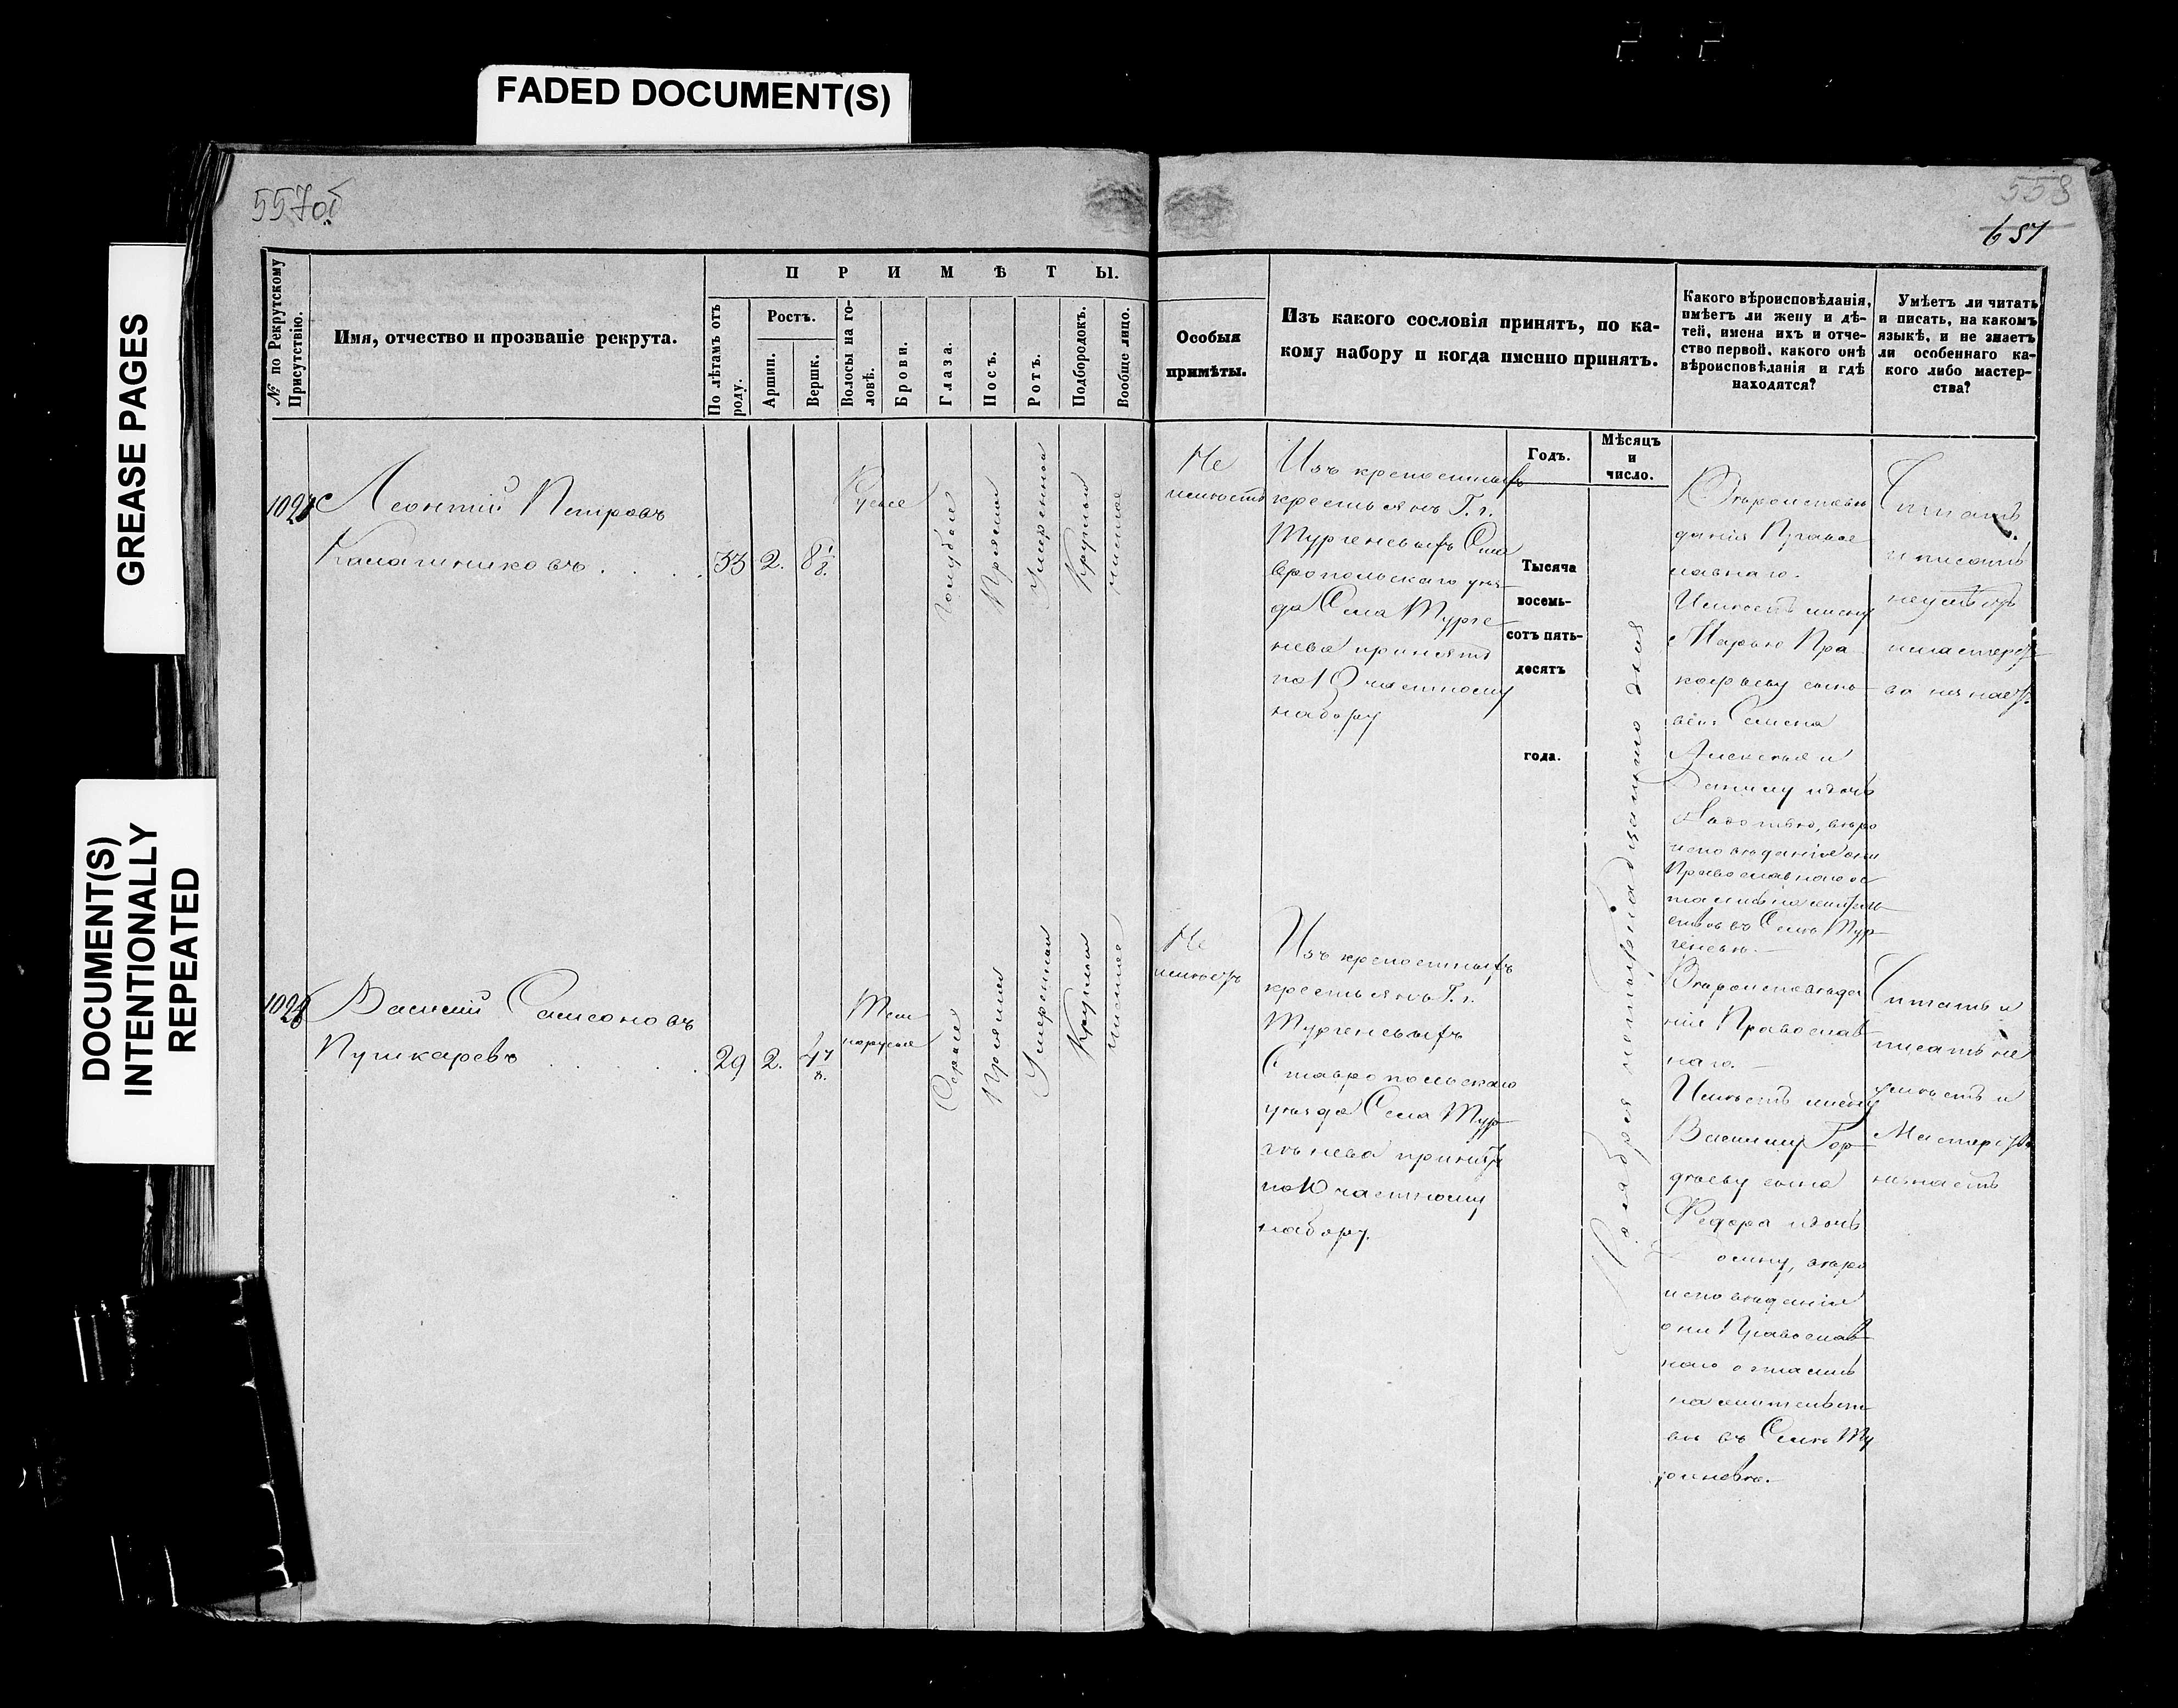 FADED DOCUMENT(S)
GREASE PAGES
DOCUMENT(S)
INTENTIONALLY
REPEATED
557об
558
657
№ по Рекрутскому
Присутствію.
Имя, отчество и прозваніе рекрута.
ПРИМѢТЫ.
По лѣтамъ отъ
роду.
Ростъ.
Аршин.
Вершк.
Волосы на го-
ловѣ.
Брови.
Глаза.
Носъ.
Ротъ.
Подбородокъ.
Вообще лицо.
Особыя
примѣты.
Изъ какого сословія принятъ, по ка-
кому набору и когда именно принятъ.
Годъ.
Мѣсяцъ
и
число.
Какого вѣроисповѣданія,
имѣетъ ли жену и дѣ-
тей, имена ихъ и отче-
ство первой, какого онѣ
вѣроисповѣданія и гдѣ
находятся?
Умѣетъ ли читать
и писать, на какомъ
языкѣ, и не знаетъ
ли особеннаго ка-
кого либо мастер-
ства?
Леонтій Петровъ
Калашниковъ
33
2.
8 1/8
Русые
Голубые
Прямой
Умѣренный
Круглый
чистое
Не
имѣетъ
Изъ крепостныхъ
крестьянъ Г. г.
Тургеневыхъ Ста
вропольскаго уѣз-
да Села Турге
нева принятъ
по 10 частному
набору
Тысяча
восемь-
сотъ пять-
десятъ
года.
Ноября четырнадцатаго дня
Вѣроисповѣ
данія Правос
лавнаго.
Имѣетъ жену
Марью Про
кофьеву сыно
вей: Семена
Алексѣя и
Данилу и дочь
вѣро
исповѣданія они
Православнаго ос
тались на житель
ствѣ въ Селѣ Тур
геневѣ.
Читать
и писать
неумѣетъ
и мастерст
ва незнаетъ.
Василій Самсоновъ
Пушкаревъ
29
2.
4 7/8.
Тем
норусые
Серые
Прямой
Умеренный
Круглый
чистое
Не
имѣетъ
Изъ крепостныхъ
крестьянъ Г. г.
Тургеневыхъ
Ставропольскаго
уѣзда Села Тур
генева принятъ
по 10 частному
набору.
Вѣроисповѣда
нія Православ
наго.
Имѣетъ жену
Василису Гор
дѣеву сына
Федора и дочь
вѣро
исповѣданія
они Православ
наго остались
на жительст
вѣ въ Селѣ Ту
ргеневѣ.
Читать и
писать не
умѣетъ и
Мастерства
незнаетъ